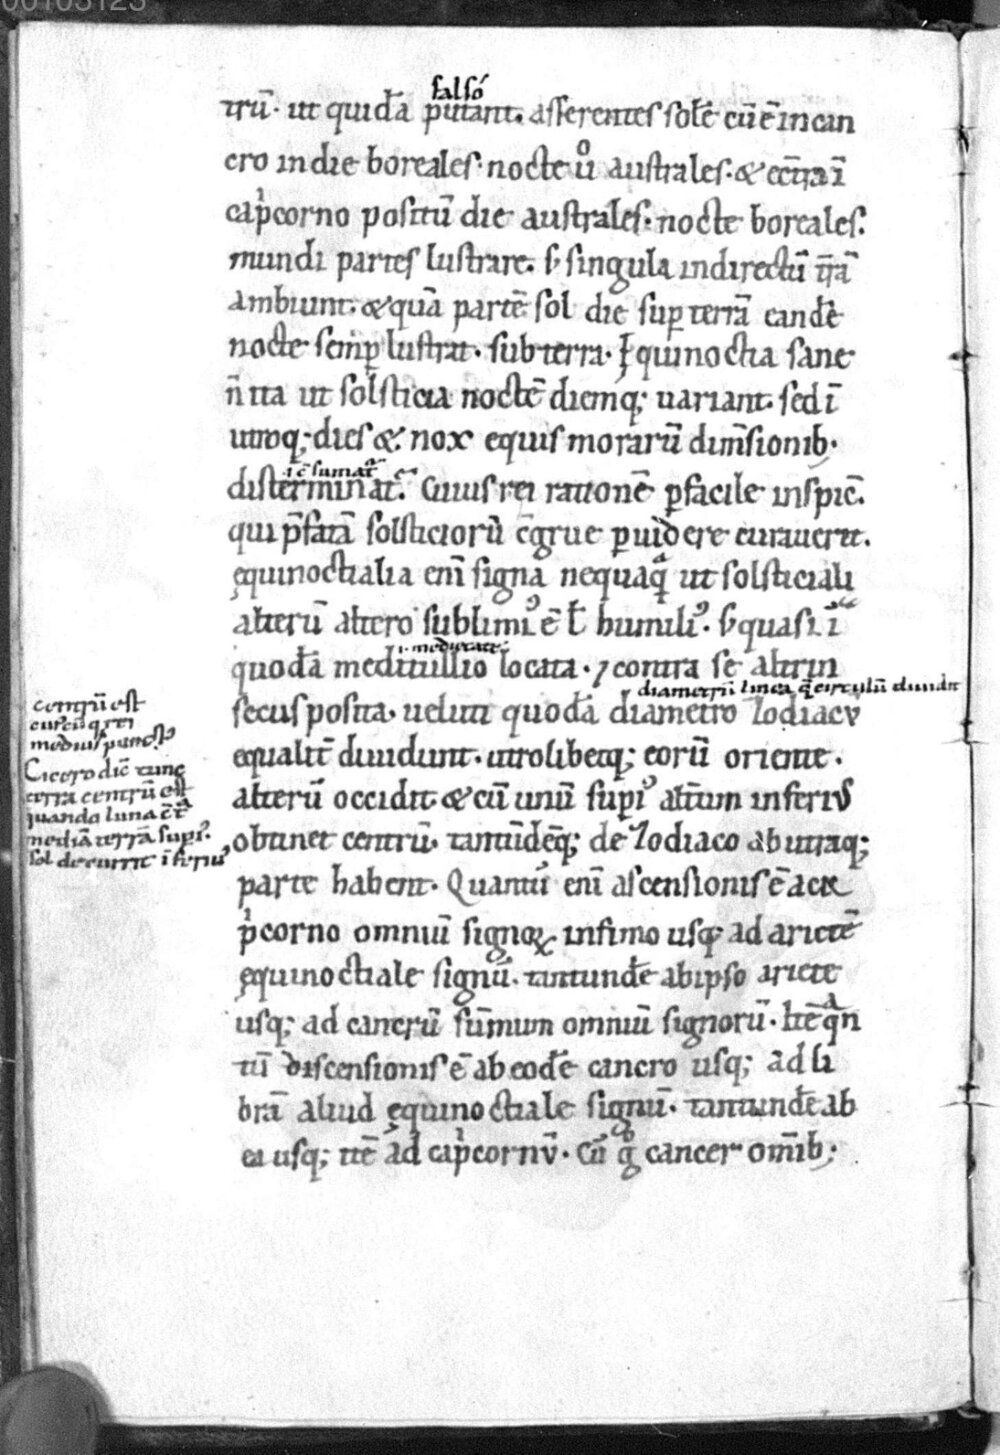 00103123
falsó
trū· ut quidā putant. asserentes solē cū ē in can
cro in die boreales· nocte ů australes· & ec̄tra ī
capͥcorno positū die australes· nocte boreales.
mundi partes lustrare. s̄ singula indirectū t̄rā
ambiunt· & quā partē sol die suꝑ terrā eandē
nocte semꝑ lustrat· sub terra· Ęquinoctia sane
n̄ ita ut solsticia noctē diemq; uariant· sed ī
utroq; dies & nox equis morarū dim̄sionib·
·i· ē sumat᷑
disterminat᷑. Cuius rei rationē ꝑfacile inspic̄.
qui p̄fatā solsticiorū c̄grue puidere curauerit.
ęquinoctialia enī signa nequaqͣ ut solsticiali
alterū altero sublimiꝰ ē ł humiliꝰ· s̄ quasi ī
·i· medietate
quodā meditullio locata· ⁊ contra se altrin
diametrū linea q̄ circulū diuidit
secus posita· uelut quodā diametro zodiacū
equalit̄ diuidunt· utrolibetq; eorū oriente·
alterū occidit· & cū unū supiꝰ alt̄um inferiꝰ
obtinet centrū· tantūdēq; de zodiaco ab utraq;
parte habent· Quantū enī ascensionis ē a
pͥcorno omniū signoꝝ infimo usq; ad arietē
ęquinoctiale signū· tantundē ab ipso ariete
usq; ad cancrū sūmum omniū signorū· Itē qͣn
tū discensionis ē ab eodē cancro usq; ad li
brā aliud ęquinoctiale signū· tantundē ab
ea usq; itē ad capͥcornū· Cū gͦ cancer om̄ib;
centrū est
mediꝰ punctꝰ
Cicero dic̄ tunc
terra centrū est
quando luna
mediā terrā supiꝰ
sol decurrit īferiꝰ